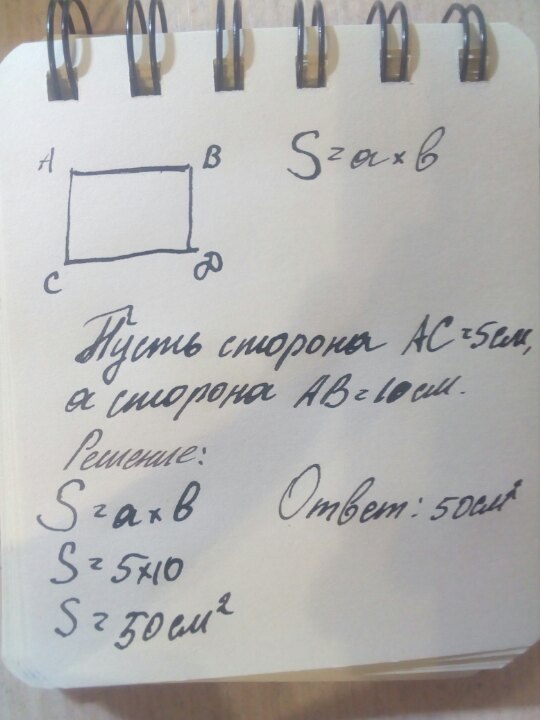 A B
C D
S = a × b
Пусть сторона AC = 5 см,
а сторона AB = 10 см.
Решение:
S = a × b
S = 5 × 10
S = 50 см²
Ответ: 50 см²